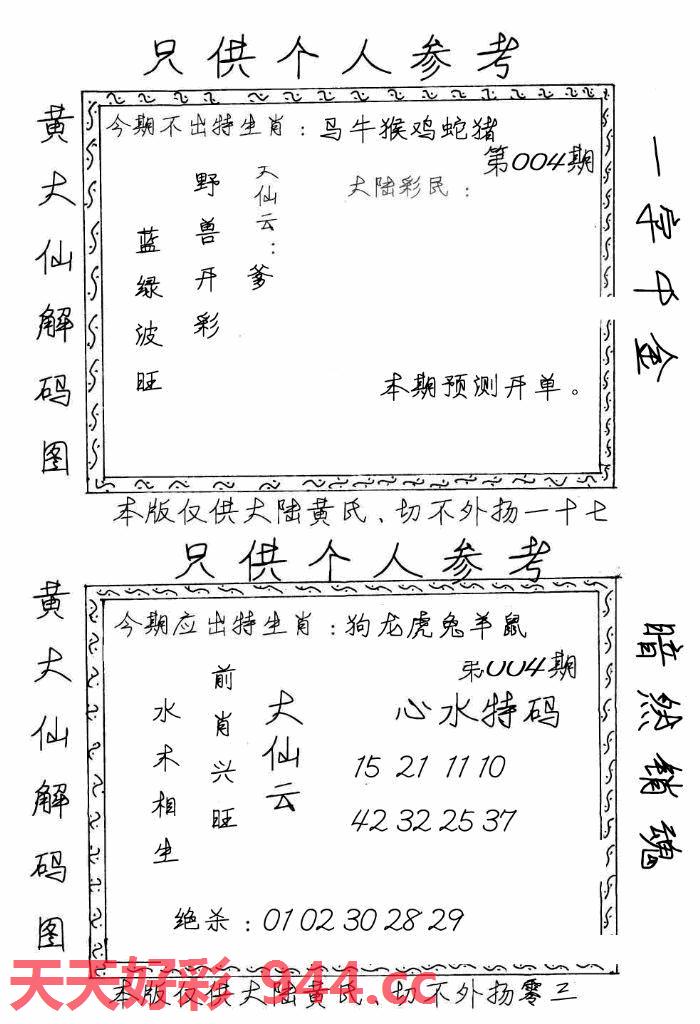 只供个人参考
黄大仙解码图
今期不出特生肖：马牛猴鸡蛇猪
第004期
大陆彩民：
大仙云：爹
野兽开彩
蓝绿波旺
本期预测开单。
一字中金
本版仅供大陆黄氏、切不外扬一十七
只供个人参考
黄大仙解码图
今期应出特生肖：狗龙虎兔羊鼠
第004期
心水特码
大仙云
前肖兴旺
水木相生
15 21 11 10
42 32 25 37
绝杀：01 02 30 28 29
暗然销魂
天天好彩 944.cc
本版仅供大陆黄氏、切不外扬零三